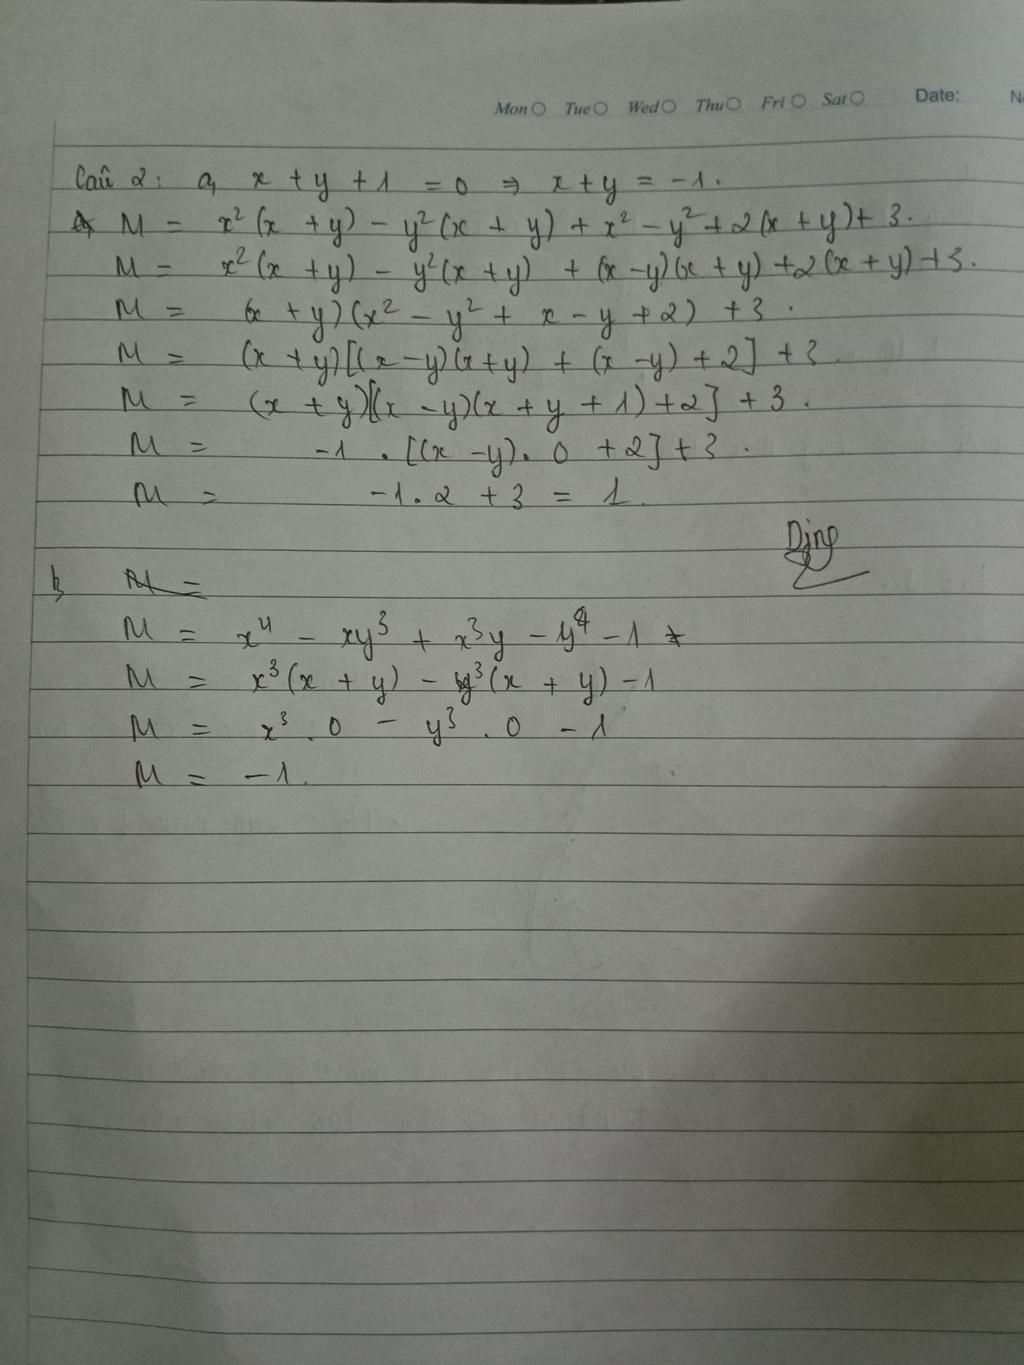 Mon Tue Wed Thu Fri Sat Date:
Câu 2: a, x + y + 1 = 0 ⇒ x + y = -1.
M = x²(x + y) - y²(x + y) + x² - y² + 2(x + y) + 3.
M = x²(x + y) - y²(x + y) + (x - y)(x + y) + 2(x + y) + 3.
M = (x + y)(x² - y² + x - y + 2) + 3.
M = (x + y)[(x - y)(x + y) + (x - y) + 2] + 3.
M = (x + y)[(x - y)(x + y + 1) + 2] + 3.
M = -1 . [(x - y). 0 + 2] + 3.
M = -1. 2 + 3 = 1.
b, M =
M = x⁴ - xy³ + x³y - y⁴ - 1
M = x³(x + y) - y³(x + y) - 1
M = x³ . 0 - y³ . 0 - 1
M = -1.